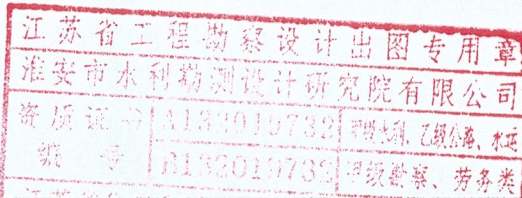 江苏省工程勘察设计出图专用章
淮安市水利勘测设计研究院有限公司
资质证书 A132019732 甲级水利、乙级公路、水运
编号 B132019732 甲级勘察、劳务类